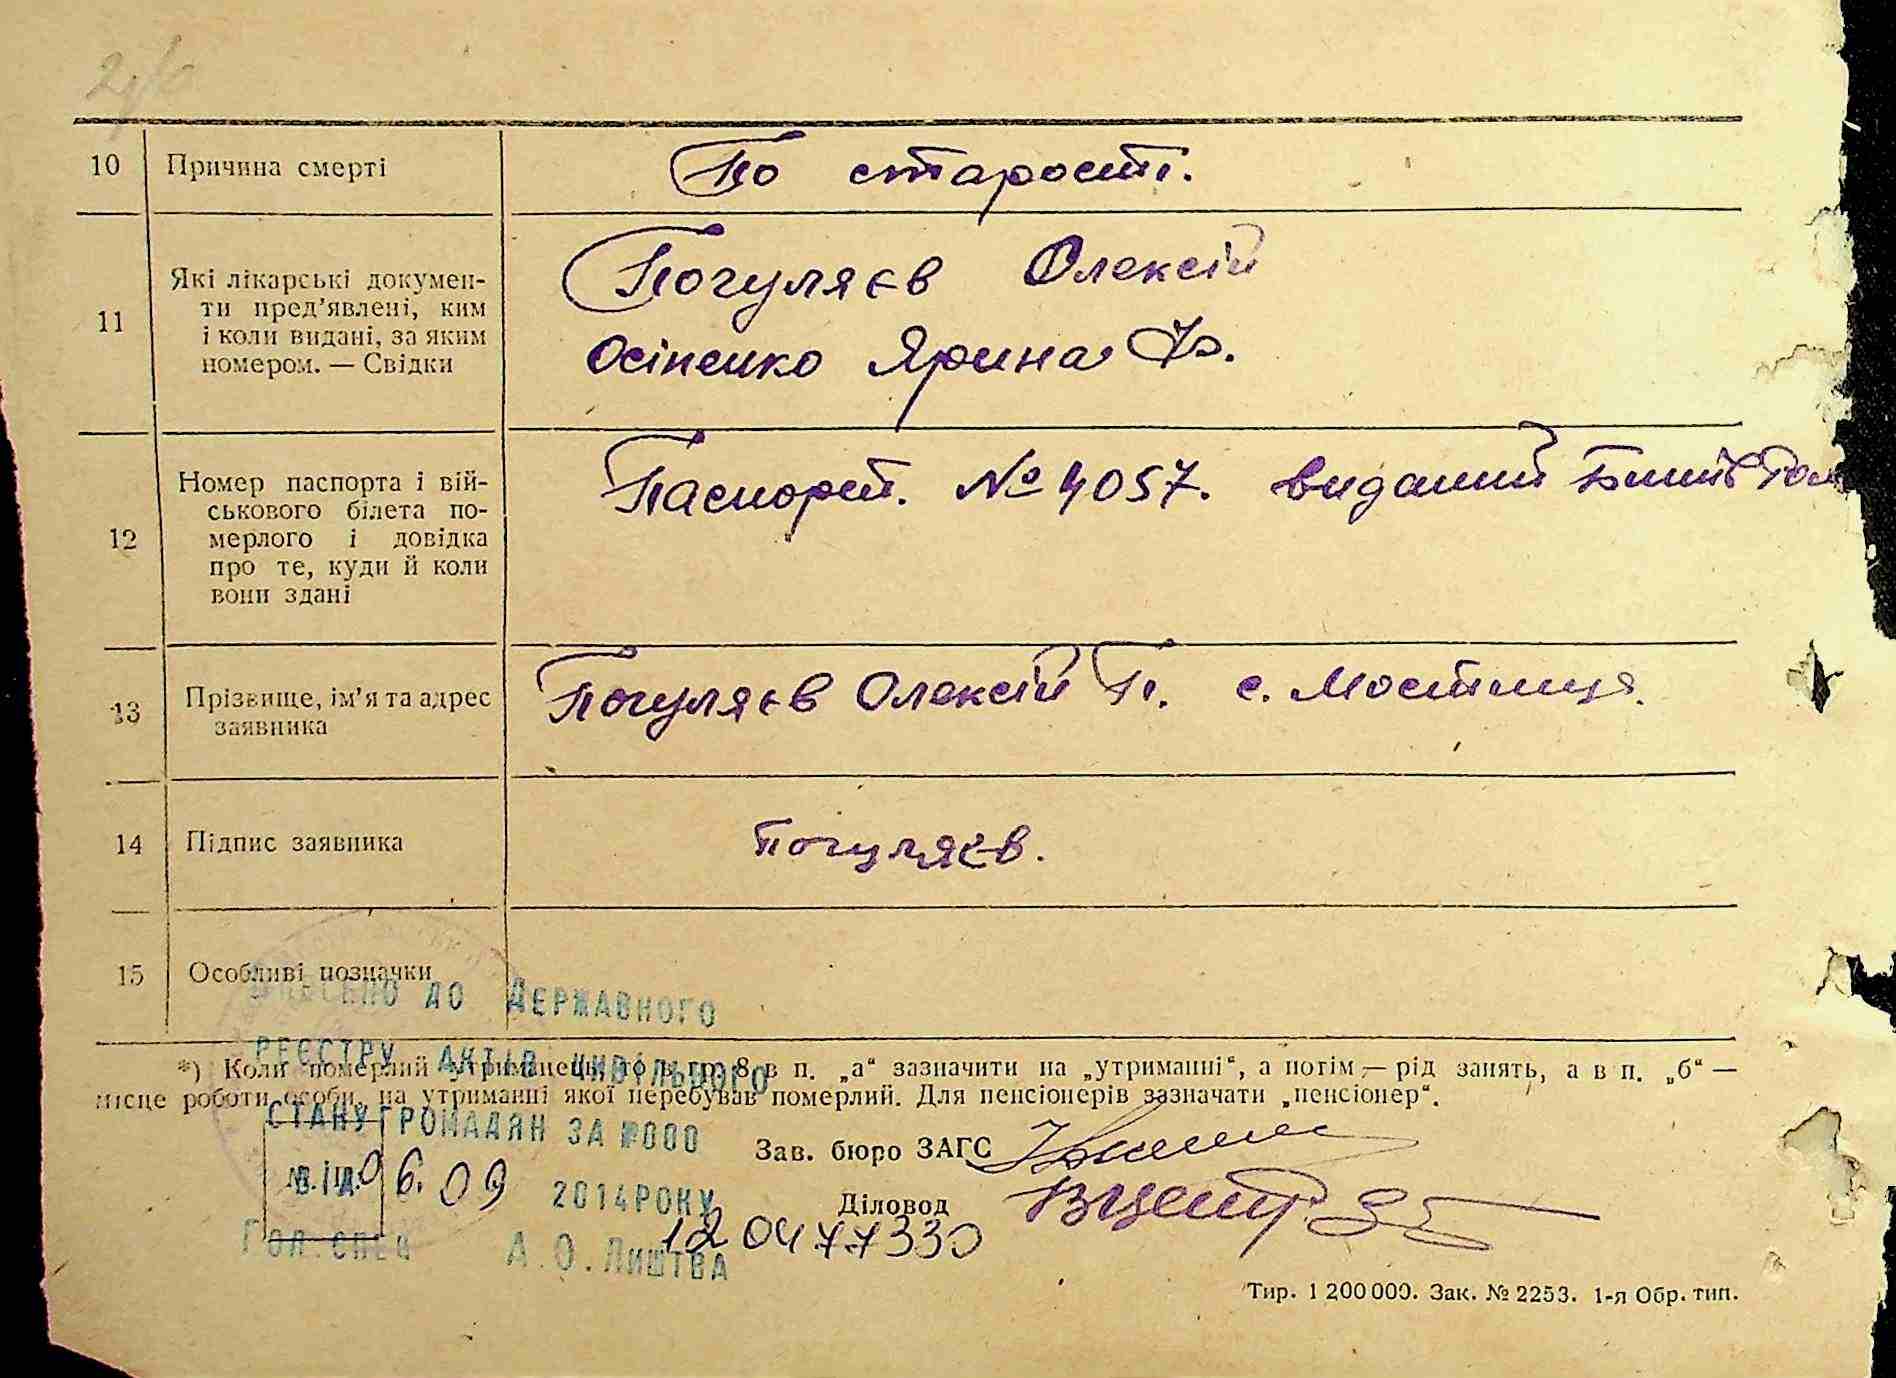 10 Причина смерті По старості.
11 Які лікарські докумен-
ти пред’явлені, ким
і коли видані, за яким
номером. — Свідки
Погуляєв Олексій
Осіпенко Ярина
12 Номер паспорта і вій-
ськового білета по-
мерлого і довідка
про те, куди й коли
вони здані
Паспорт. № 4057. виданий
13 Прізвище, ім’я та адрес
заявника
Погуляєв Олексій П. с. Мостище.
14 Підпис заявника Погуляєв.
15 Особливі позначки
ВНЕСЕНО ДО ДЕРЖАВНОГО
РЕЄСТРУ АКТІВ ЦИВІЛЬНОГО
*) Коли померлий утриманець, то в гр. 8 в п. „а“ зазначити на „утриманні“, а потім — рід занять, а в п. „б“ —
місце роботи особи, на утриманні якої перебував померлий. Для пенсіонерів зазначати „пенсіонер“.
СТАНУ ГРОМАДЯН ЗА №000
Зав. бюро ЗАГС
М. П.
ВІД 06.09 2014 РОКУ
Діловод
120477330
ГОЛ. СПЕЦ А.О. ЛИШТВА
Тир. 1 200 000. Зак. № 2253. 1-я Обр. тип.